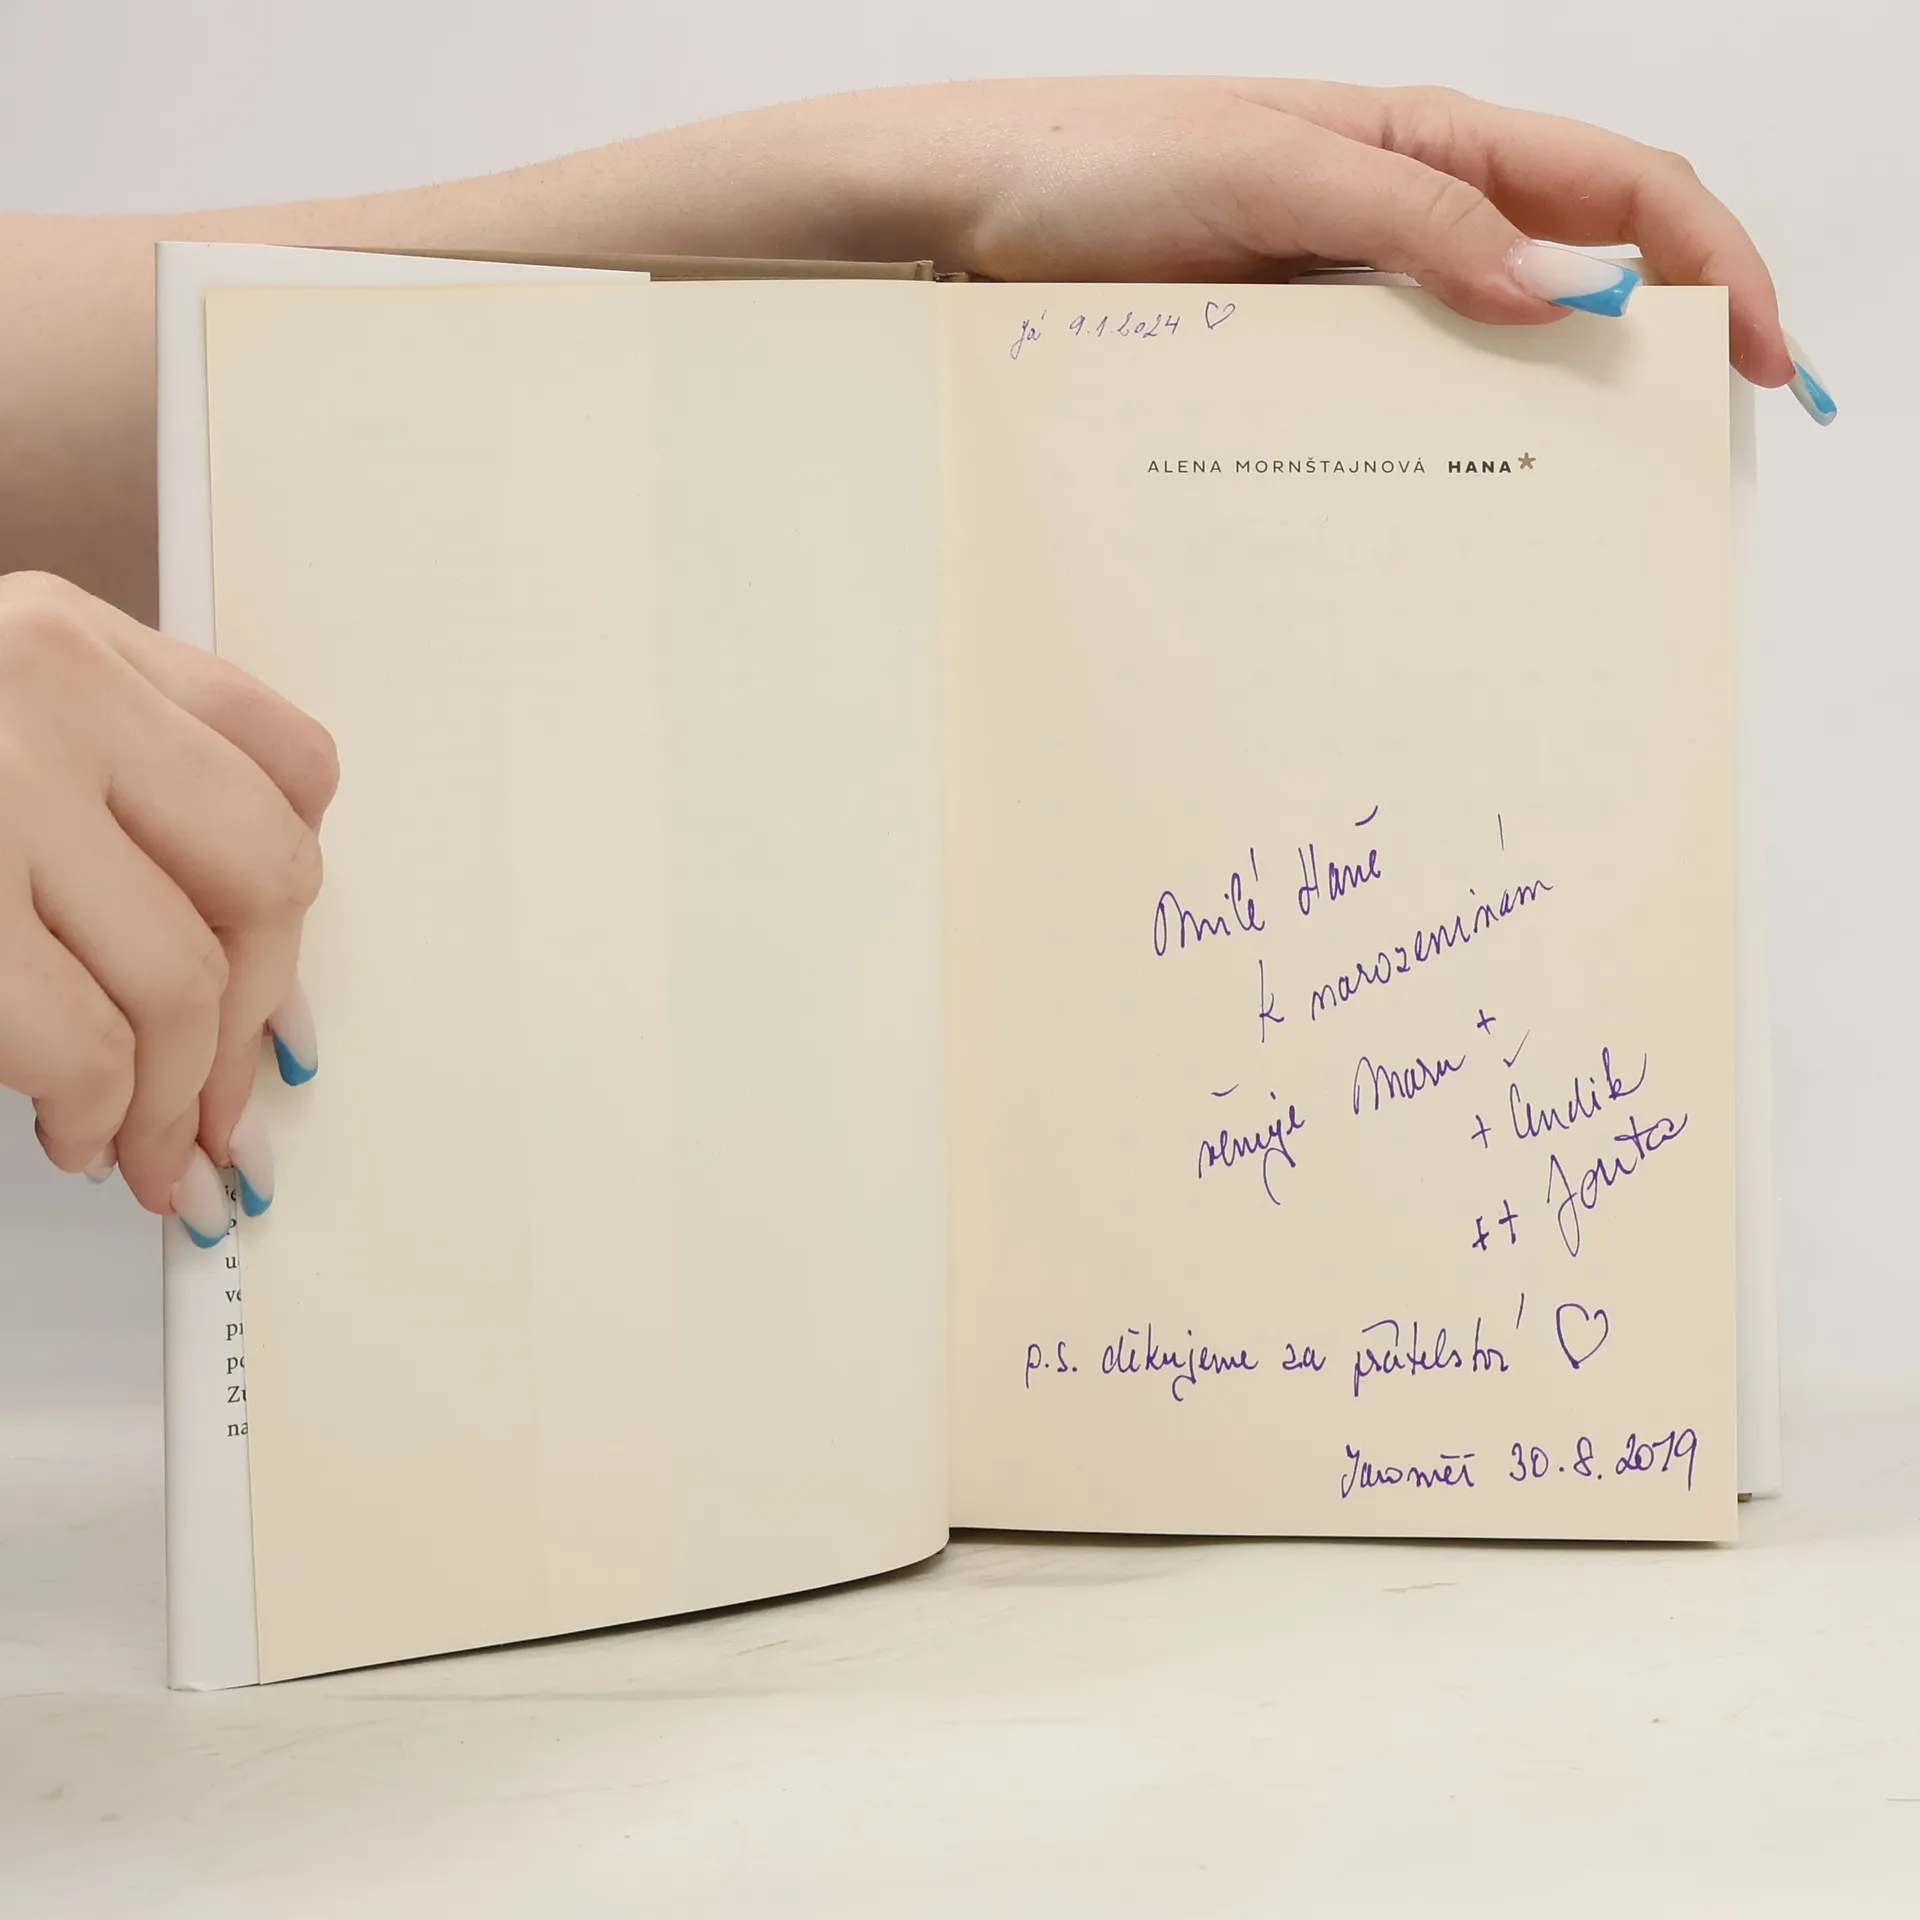 Já 9.1.2024 ♡
ALENA MORNŠTAJNOVÁ HANA*
Milé Haně
k narozeninám
věnuje Maru +
+ Čendík
++ Jouta
p.s. děkujeme za přátelství ♡
Jaroměř 30.8.2019
je
u
ve
př
po
Zu
na